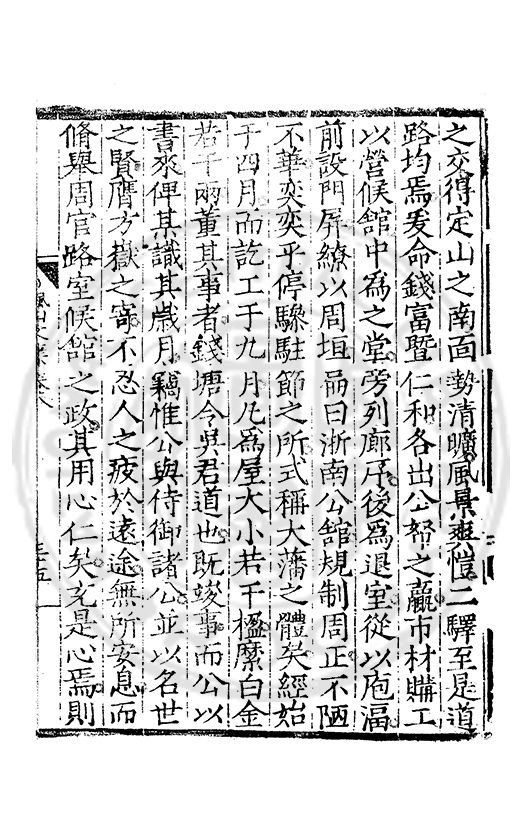 之交得定山之南面勢清曠風景爽愷二驛至是道
路均焉爰命錢富暨仁和各出公帑之羸市材購工
以營候館中為之堂旁列廊序後為退室從以庖湢
前設門屏繚以周垣扁曰浙南公館規制周正不陋
不華奕奕乎停驂駐節之所式稱大藩之體矣經始
于四月而訖工于九月凡為屋大小若干楹縻白金
若干兩董其事者錢塘令吳君道也既竣事而公以
書來俾某識其歲月竊惟公與侍御諸公並以名世
之賢膺方嶽之寄不忍人之疲於遠途無所安息而
脩舉周官路室候館之政其用心仁矣充是心焉則